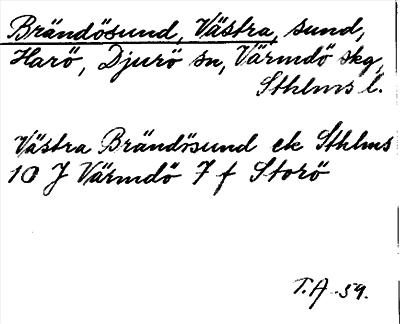 Brändösund, Västra, sund,
Harö, Djurö sn, Värmdö skg,
Sthlms l.
Västra Brändösund ek Sthlms
10 J Värmdö 7 f Storö
T.A. 59.